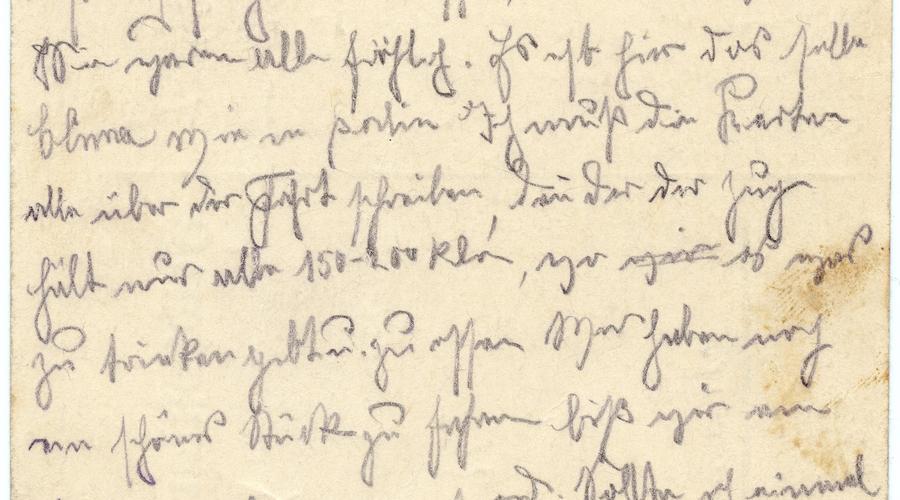 Wir waren alle fröhlich. Es ist hier das selbe
Clima wie in Ich muß die Karten
alle über der Fahrt schreiben, den der der Zug
hält nur alle 150-200 Klm, wo wir es was
zu trinken gebt u. zu essen Wir haben noch
ein schönes Stück zu fahren biß wir am
Sollte ich einmal